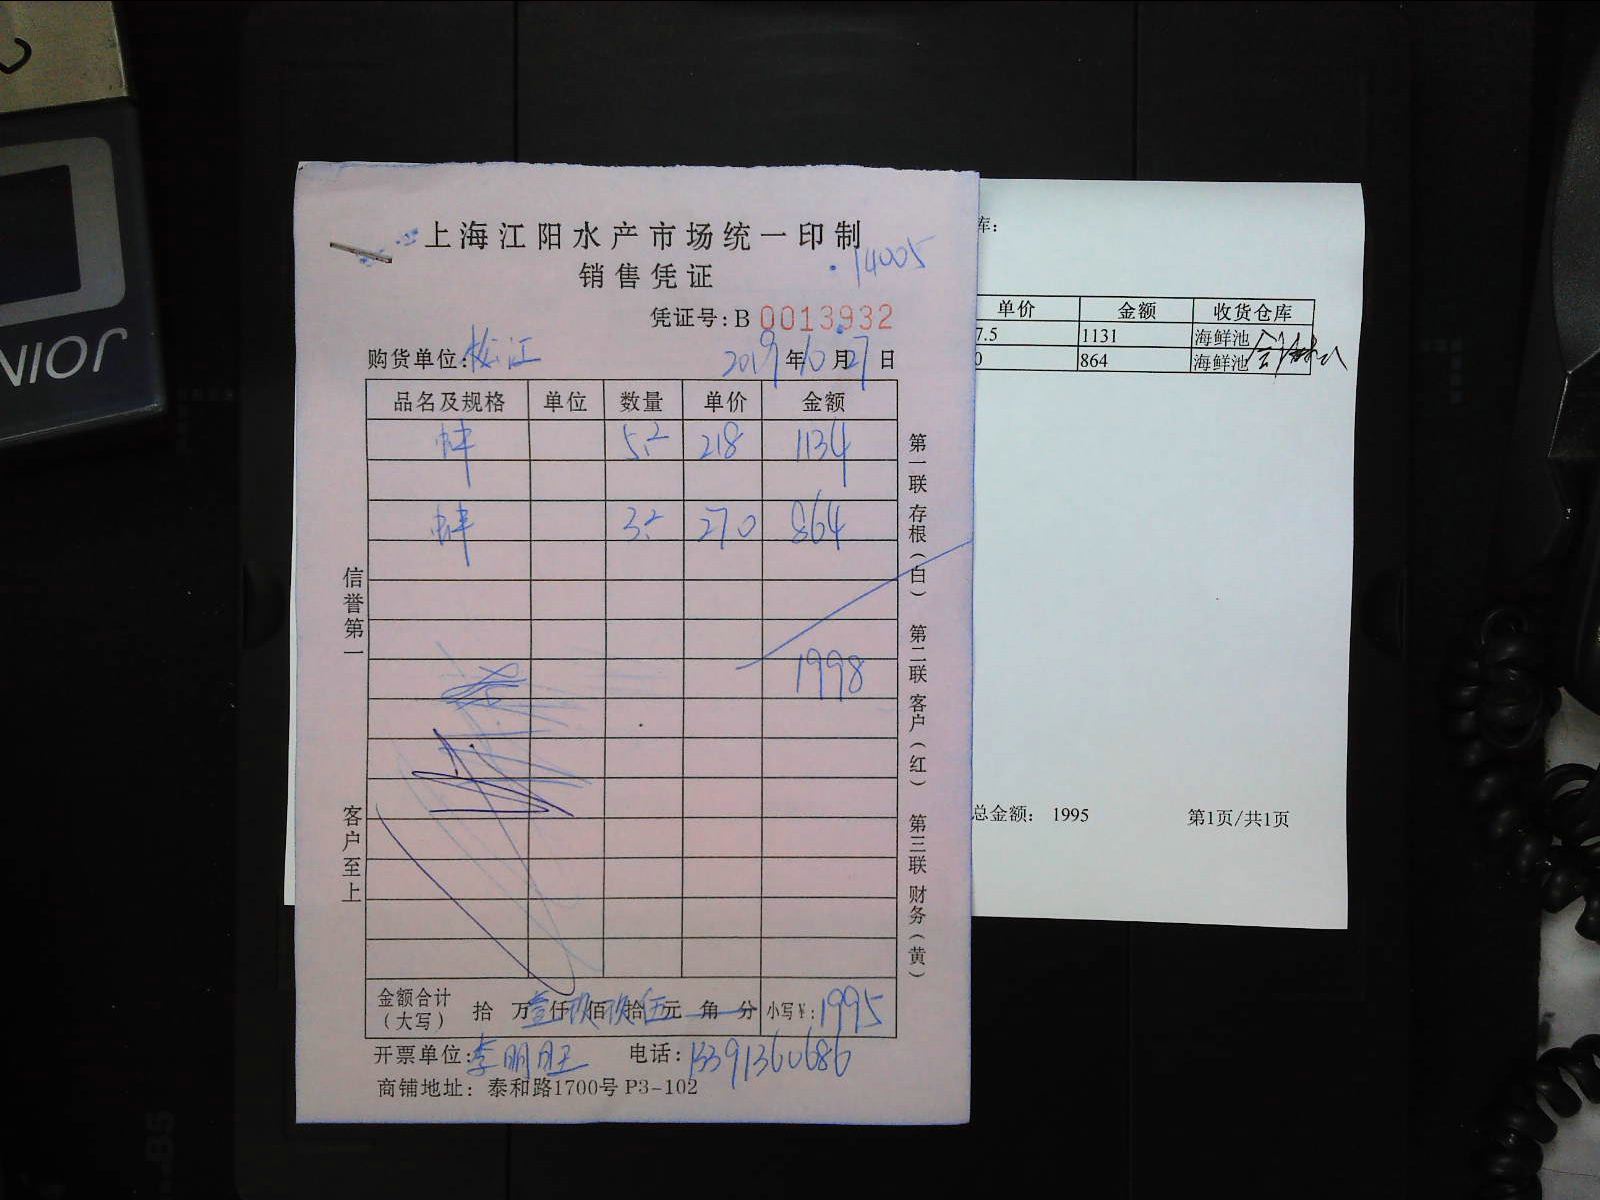 上海江阳水产市场统一印制
14005
销售凭证
凭证号:B 0013932
购货单位:松江
2019年10月27日
品名及规格 单位 数量 单价 金额
蚌 5.2 218 1134
蚌 3.2 270 864
1998
金额合计(大写) 拾 万壹仟玖佰玖拾伍元 角 分 小写¥:1995
开票单位:李明旺 电话:13391360686
商铺地址: 泰和路1700号 P3-102
信誉第一
客户至上
第一联 存根(白) 第二联 客户(红) 第三联 财务(黄)
库:
单价 金额 收货仓库
7.5 1131 海鲜池
0 864 海鲜池
总金额: 1995 第1页/共1页
NIOR